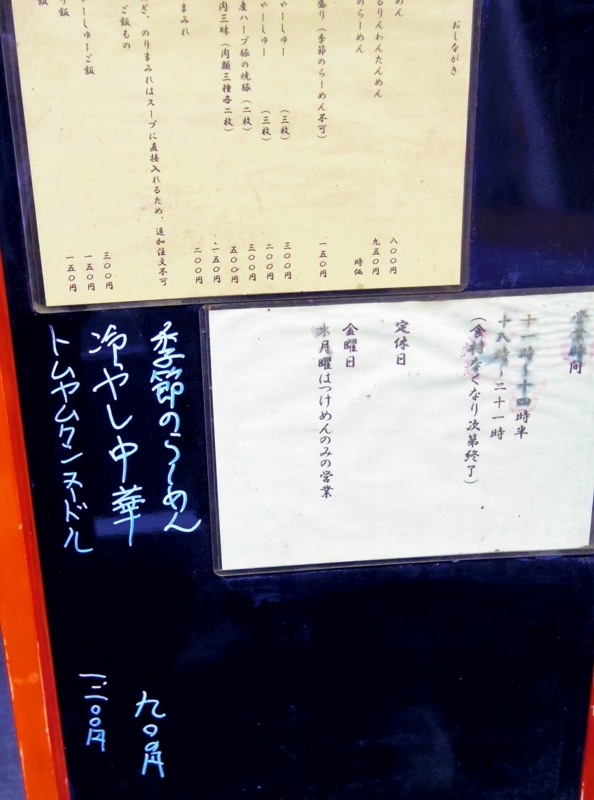 おしながき
めん 八〇〇円
るりんわんたんめん 九五〇円
のらーめん 時価
盛り（季節のらーめん不可） 一五〇円
ゃーしゅー （三枚） 三〇〇円
ゃーしゅー （三枚） 二〇〇円
産ハーブ豚の焼豚（二枚） 三〇〇円
肉三昧（肉類三種各二枚） 五〇〇円
一五〇円
まみれ 二〇〇円
ぎ、のりまみれはスープに直接入れるため、追加注文不可
ご飯もの
三〇〇円
ーしゅーご飯 一五〇円
り飯 一五〇円
飯
営業時間
十一時〜十四時半
十八時〜二十一時
（食材なくなり次第終了）
定休日
金曜日
木月曜はつけめんのみの営業
季節のらーめん
冷やし中華 九〇〇円
トムヤムクンヌードル 一二〇〇円